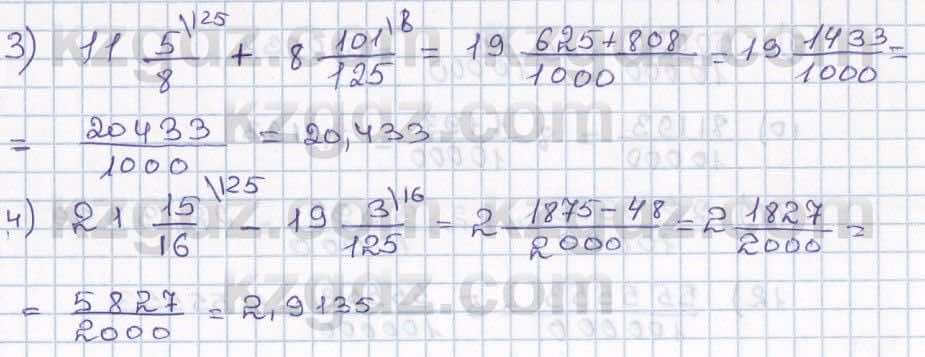 3) 11 5/8 \125 + 8 101/125 \8 = 19 (625+808)/1000 = 19 1433/1000 =
= 20433/1000 = 20,433
4) 21 15/16 \125 - 19 3/125 \16 = 2 (1875-48)/2000 = 2 1827/2000 =
= 5827/2000 = 2,9135